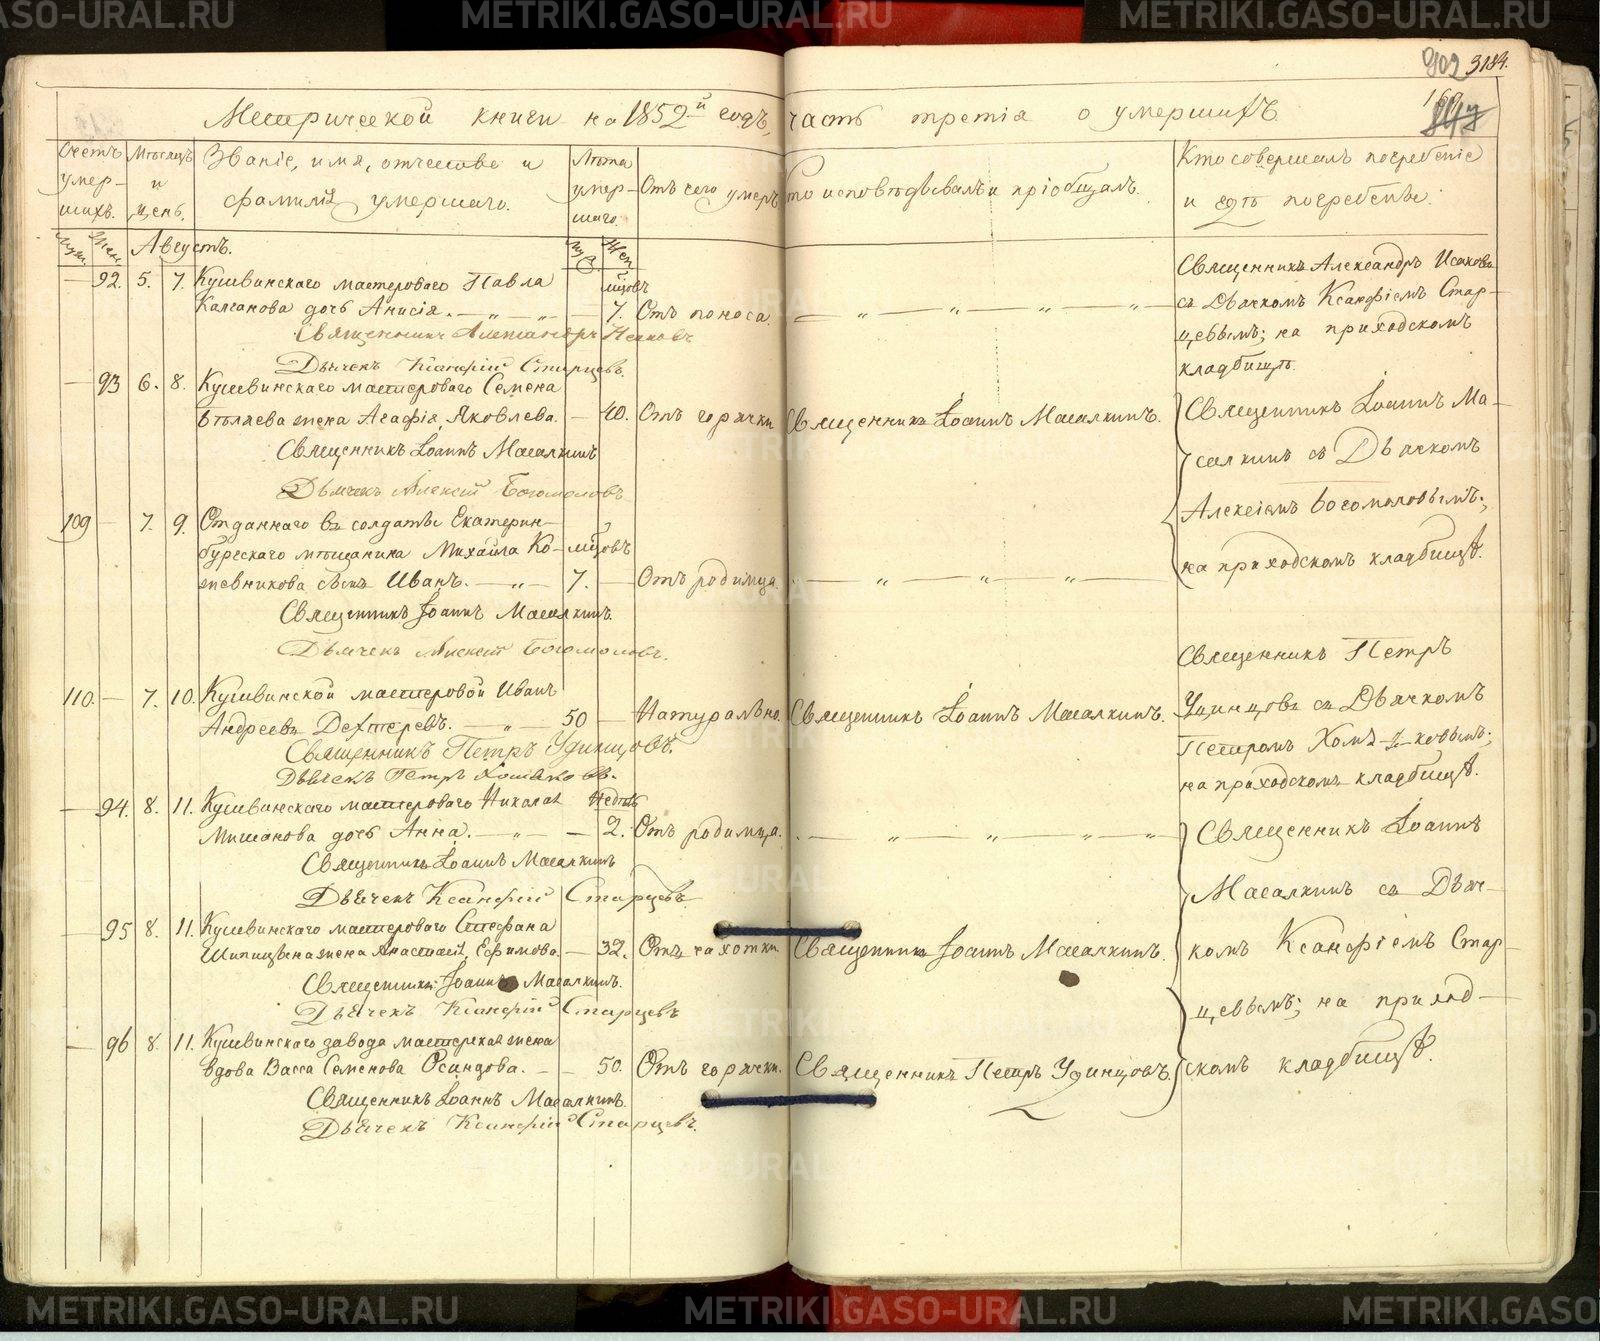 METRIKI.GASO-URAL.RU
902 3184.
Метрической книги на 1852й годъ, часть третія о умершихъ
Счетъ умер-шихъ.
Мѣсяцъ и день.
Званіе, имя, отчество и фамилія умершаго.
Лѣта умер-шаго.
Отъ чего умеръ
Кто исповѣдывалъ и пріобщалъ.
Кто совершалъ погребеніе и гдѣ погребены.
Муж. Жен. Августъ. Муж. Жен.
— 92. 5. 7. Кушвинскаго мастероваго Павла мѣсцовъ
Калганова дочь Анисія. — „ — „ — 7. Отъ поноса. — „ — „ — „ —
Священникъ Александръ Исаковъ
Дьячекъ Ксанфій Старцевъ.
Священникъ Александръ Исаковъ
съ Дьячкомъ Ксанфіемъ Стар-
цевымъ; на приходскомъ
кладбищѣ.
— 93 6. 8. Кушвинскаго мастероваго Семена
Бѣляева жена Агафія Яковлева. — 40. Отъ горячки Священникъ Іоаннъ Масалкинъ.
Священникъ Іоаннъ Масалкинъ
Дьячекъ Алексѣй Богомоловъ
Священникъ Іоаннъ Ма-
салкинъ съ Дьячкомъ
Алексіемъ Богомоловымъ;
на приходскомъ кладбищѣ.
109 — 7. 9. Отданнаго въ солдаты Екатерин-
бургскаго мѣщанина Михаила Ко- мѣсцовъ
жевникова сынъ Иванъ. — „ — 7. — Отъ родимца. — „ — „ — „ —
Священникъ Іоаннъ Масалкинъ.
Дьячекъ Алексѣй Богомоловъ.
110. — 7. 10. Кушвинской мастеровой Иванъ
Андреевъ Дехтеревъ. — „ — 50 — Натурально. Священникъ Іоаннъ Масалкинъ.
Священникъ Петръ Удинцовъ.
Дьячекъ Петръ Хомяковъ.
Священникъ Петръ
Удинцовъ съ Дьячкомъ
Петромъ Хомяковымъ;
на приходскомъ кладбищѣ.
— 94. 8. 11. Кушвинскаго мастероваго Николая Недѣль
Мишанова дочь Анна. — „ — — 2. Отъ родимца. — „ — „ — „ — „
Священникъ Іоаннъ Масалкинъ
Дьячекъ Ксанфій Старцевъ
— 95 8. 11. Кушвинскаго мастероваго Стефана
Шипицына жена Анастасія Ефимова. — 32. Отъ чахотки Священникъ Іоаннъ Масалкинъ.
Священникъ Іоаннъ Масалкинъ.
Дьячекъ Ксанфій Старцевъ
— 96 8. 11. Кушвинскаго завода мастерская жена
вдова Васса Семенова Осинцова. — — 50. Отъ горячки. Священникъ Петръ Удинцовъ.
Священникъ Іоаннъ Масалкинъ.
Дьячекъ Ксанфій Старцевъ.
Священникъ Іоаннъ
Масалкинъ съ Дьяч-
комъ Ксанфіемъ Стар-
цевымъ; на приход-
скомъ кладбищѣ.
METRIKI.GASO-URAL.RU